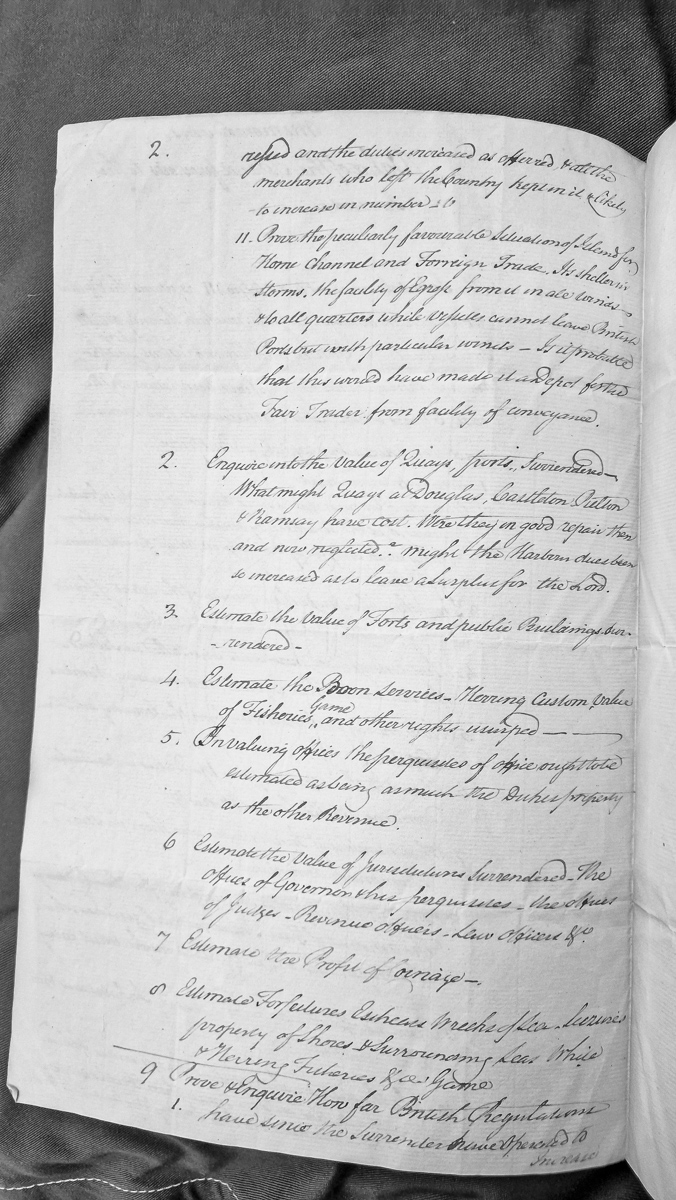 2. and the duties increased as offerred, & all the
merchants who left the Country kept in it & likely
to increase in number
11. Prove the peculiarly favourable Situation of Island for
Home Channel and Forreign Trade, Its shelter in
storms, the facility of Egress from it in all winds
& to all quarters while vessells cannot leave British
Ports but with particular winds – Is it probable
that this would have made it a Depot for the
Fair Trader from facility of conveyance.
2. Enquire into the Value of Quays, ports, Surrendered –
What might Quays at Douglas, Castleton
& Ramsay have cost. Were they in good repair then
and now neglected. might the Harbour dues been
so increased as to leave a Surplus for the Lord.
3. Estimate the Value of Forts, and public Buildings, sur-
-rendered –
4. Estimate the Boon Services – Herring Custom, Value
of Fisheries, Game and other rights usurped –
5. In valuing offices the perquisites of office ought to be
estimated as being as much the Dukes property
as the other Revenue.
6 Estimate the Value of Jurisdictions Surrendered – The
offices of Governor & his perquisites – the offices
of Judges – Revenue officers – Law Officers &c.
7 Estimate the Profit of Coinage –
8 Estimate Forfeitures Escheats Wrecks of Sea
property of Shores & Surrounding Seas White
& Herring Fisheries &c Game
9 Prove & Enquire How far British Regulations
1. have since the Surrender have operated to
Increase